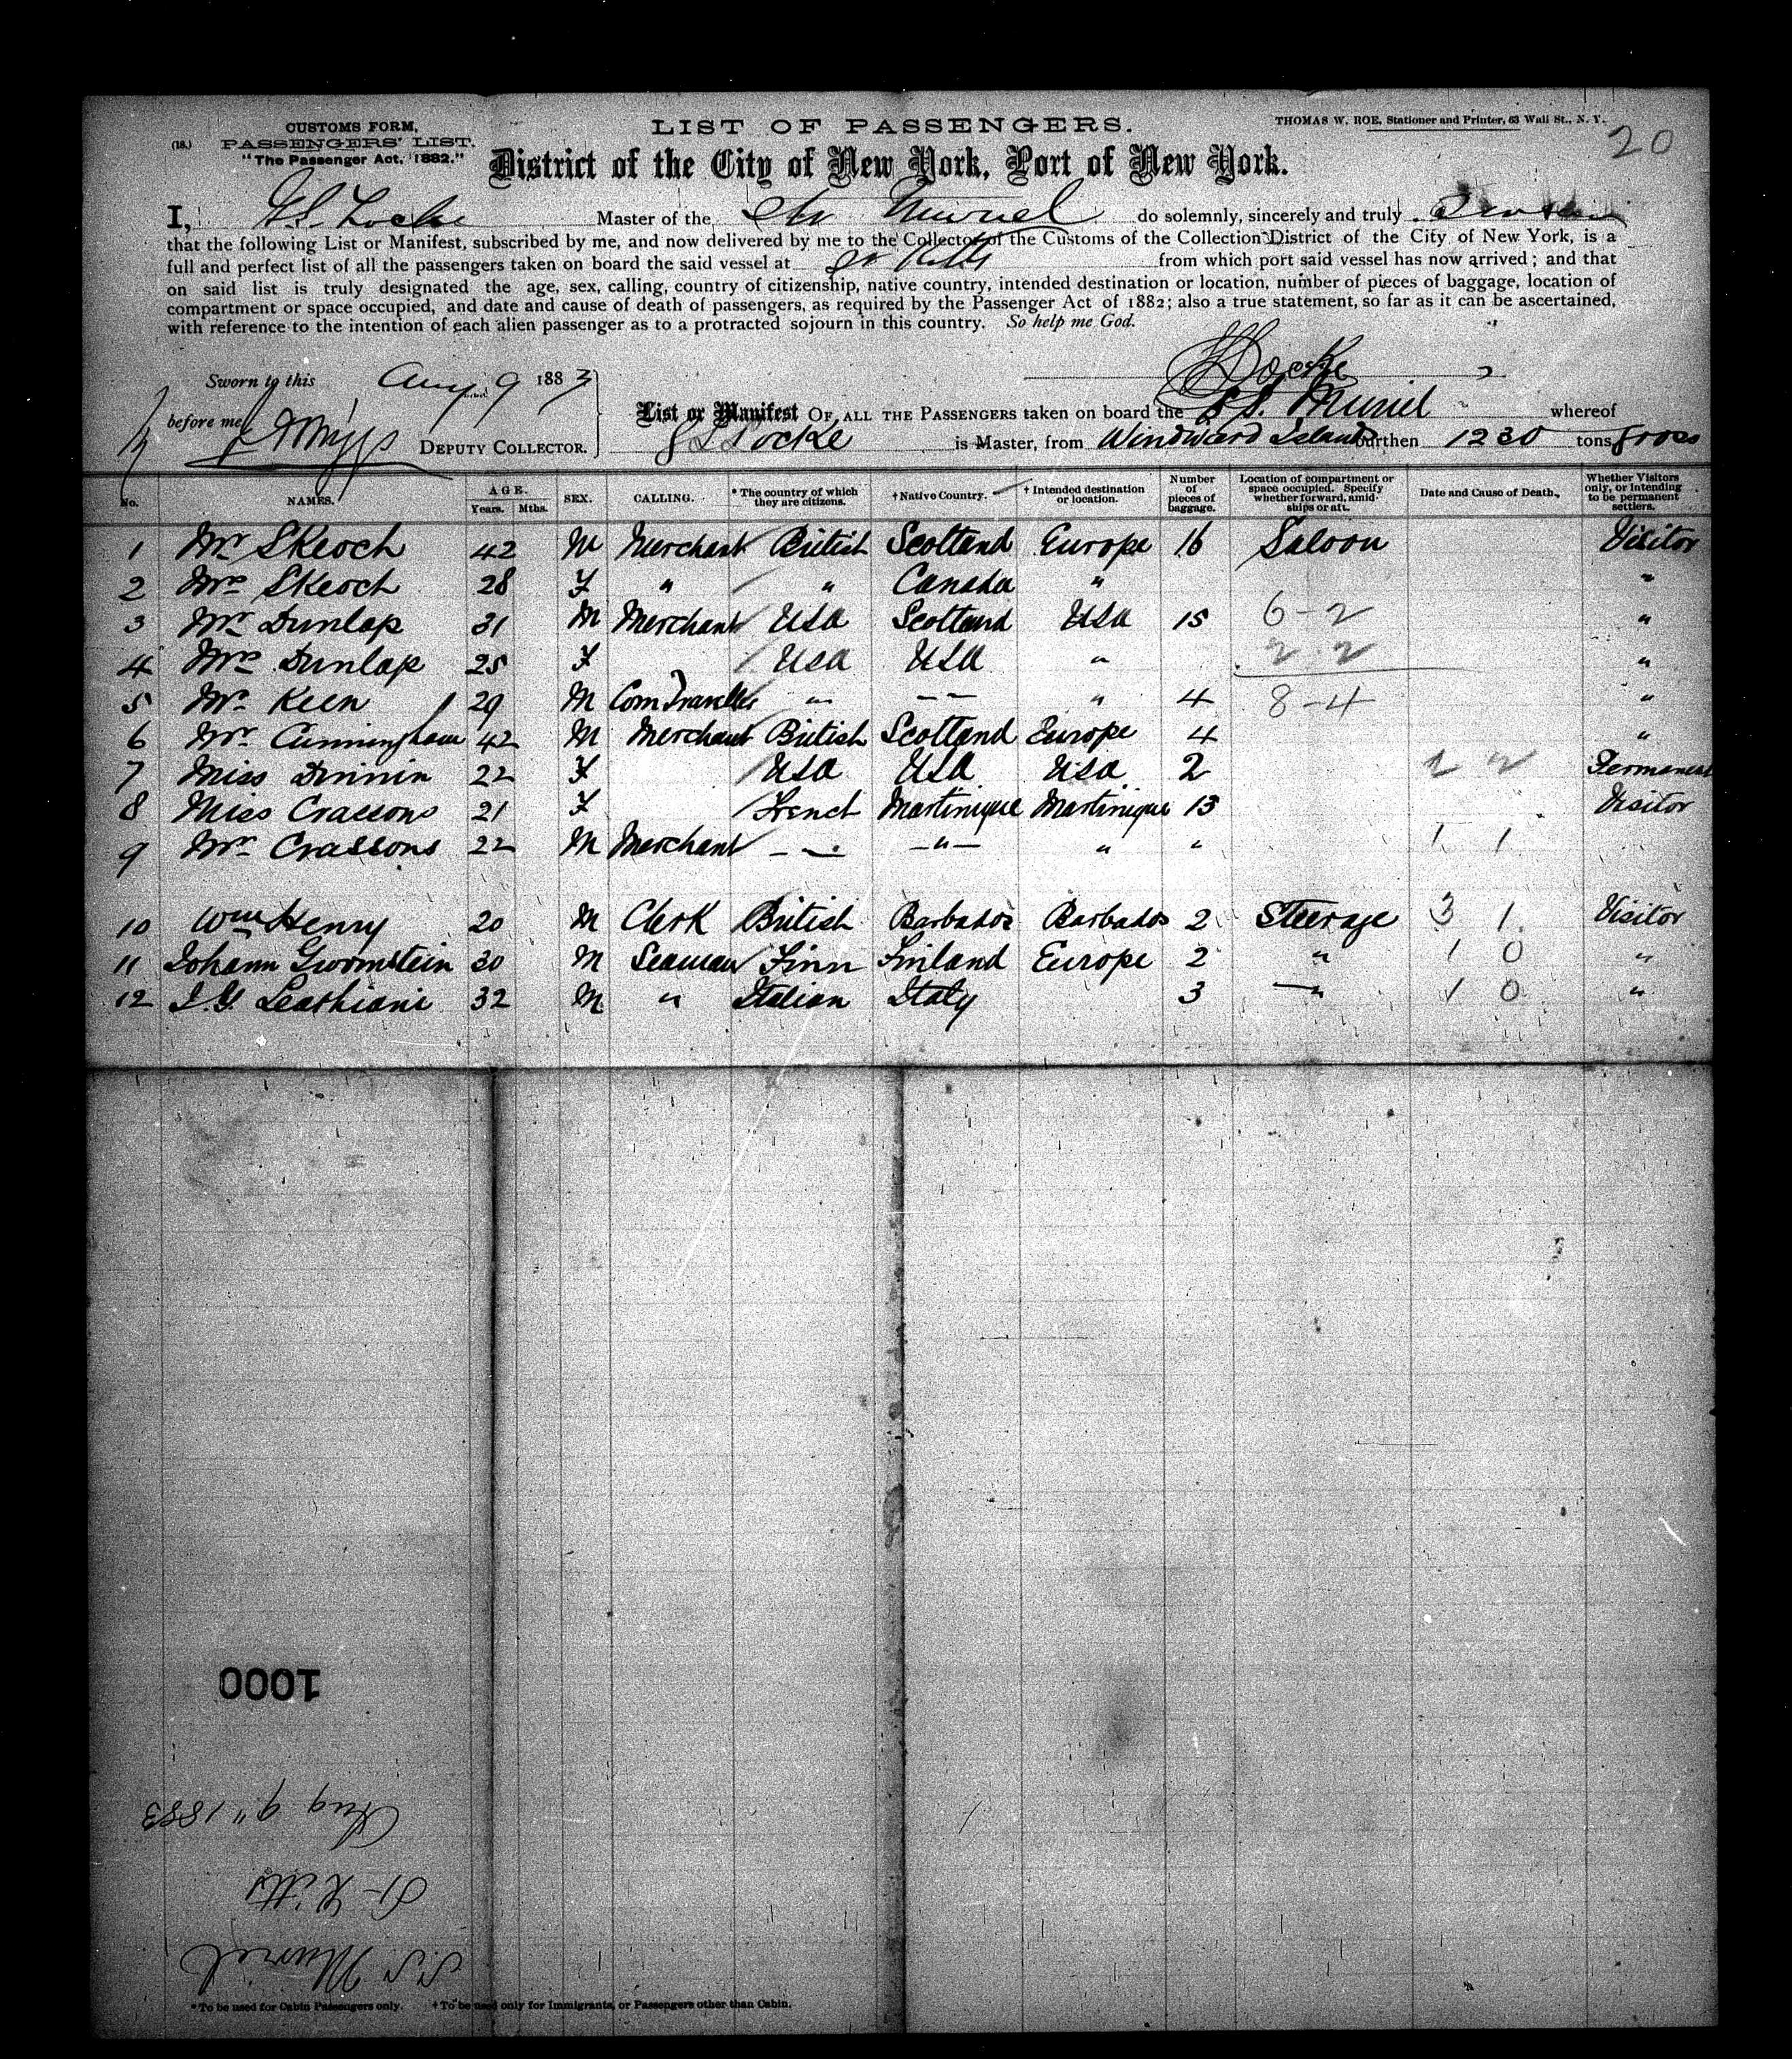 CUSTOMS FORM,
(18.) PASSENGERS' LIST.
"The Passenger Act, 1882."
LIST OF PASSENGERS.
THOMAS W. ROE, Stationer and Printer, 63 Wall St., N. Y.
20
District of the City of New York, Port of New York.
I, Locke Master of the Str Muriel do solemnly, sincerely and truly
that the following List or Manifest, subscribed by me, and now delivered by me to the Collector of the Customs of the Collection District of the City of New York, is a
full and perfect list of all the passengers taken on board the said vessel at St Kitts from which port said vessel has now arrived; and that
on said list is truly designated the age, sex, calling, country of citizenship, native country, intended destination or location, number of pieces of baggage, location of
compartment or space occupied, and date and cause of death of passengers, as required by the Passenger Act of 1882; also a true statement, so far as it can be ascertained,
with reference to the intention of each alien passenger as to a protracted sojourn in this country. So help me God.
Locke
Sworn to this Aug. 9 1883
before me
DEPUTY COLLECTOR.
List or Manifest OF ALL THE PASSENGERS taken on board the S.S. Muriel whereof
Locke is Master, from Windward Islands burthen 1230 tons gross
No. NAMES. AGE. Years. Mths. SEX. CALLING. * The country of which they are citizens. † Native Country. † Intended destination or location. Number of pieces of baggage. Location of compartment or space occupied. Specify whether forward, amidships or aft. Date and Cause of Death. Whether Visitors only, or intending to be permanent settlers.
1 Mr Skeoch 42 M Merchant British Scotland Europe 16 Saloon Visitor
2 Mrs Skeoch 28 F " " Canada " "
3 Mr Dunlap 31 M Merchant USA Scotland USA 15 6-2 "
4 Mrs Dunlap 25 F USA USA " 2 2 "
5 Mr Keen 29 M Com Traveller " " " 4 8-4 "
6 Mr Cunningham 42 M Merchant British Scotland Europe 4 "
7 Miss Dinnin 22 F USA USA USA 2 2 Permanent
8 Miss Crassons 21 F French Martinique Martinique 13 Visitor
9 Mr Crassons 22 M Merchant " " " " 1 1
10 Wm Henry 20 M Clerk British Barbados Barbados 2 Steerage 3 1 Visitor
11 Johann 30 M Seaman Finn Finland Europe 2 " 1 0 "
12 32 M " Italian Italy 3 " 1 0 "
1000
Aug 9" 1883
St Kitts
S.S. Muriel
* To be used for Cabin Passengers only. † To be used only for Immigrants, or Passengers other than Cabin.